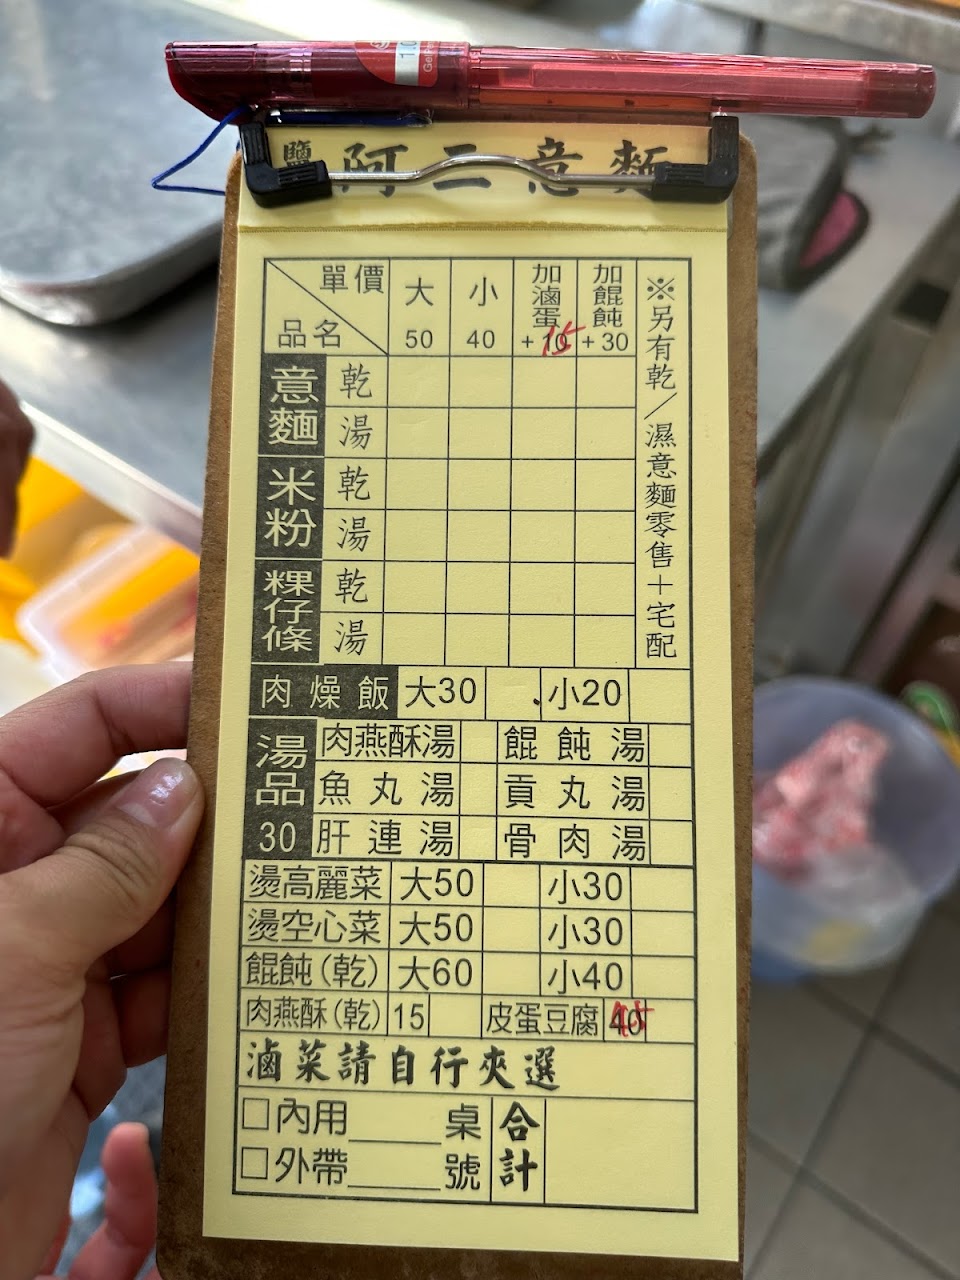 1.0
Gel Pen
鹽 阿二意麵
單價 品名 大 50 小 40 加滷蛋 +15 加餛飩 +30
意麵 乾
湯
米粉 乾
湯
粿仔條 乾
湯
※另有乾/濕意麵零售+宅配
肉燥飯 大30 小20
湯品30 肉燕酥湯 餛飩湯
魚丸湯 貢丸湯
肝連湯 骨肉湯
燙高麗菜 大50 小30
燙空心菜 大50 小30
餛飩(乾) 大60 小40
肉燕酥(乾) 15 皮蛋豆腐 45
滷菜請自行夾選
□內用____桌 合計
□外帶____號